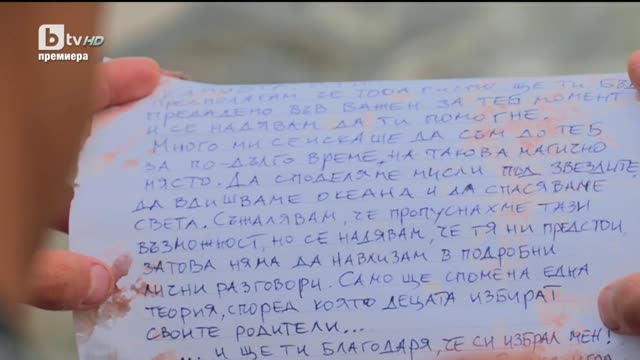 btv HD
премиера
ПРЕДПОЛАГАМ ЧЕ ТОВА ПИСМО ЩЕ ТИ БЪДЕ
ПРЕДАДЕНО ВЪВ ВАЖЕН ЗА ТЕБ МОМЕНТ
И СЕ НАДЯВАМ ДА ТИ ПОМОГНЕ.
МНОГО МИ СЕ ИСКАШЕ ДА СЪМ ДО ТЕБ
ЗА ПО-ДЪЛГО ВРЕМЕ, НА ТАКОВА МАГИЧНО
МЯСТО. ДА СПОДЕЛЯМЕ МИСЛИ ПОД ЗВЕЗДИТЕ,
ДА ВДИШВАМЕ ОКЕАНА И ДА СПАСЯВАМЕ
СВЕТА. СЪЖАЛЯВАМ, ЧЕ ПРОПУСНАХМЕ ТАЗИ
ВЪЗМОЖНОСТ, НО СЕ НАДЯВАМ, ЧЕ ТЯ НИ ПРЕДСТОИ,
ЗАТОВА НЯМА ДА НАВЛИЗАМ В ПОДРОБНИ
ЛИЧНИ РАЗГОВОРИ. САМО ЩЕ СПОМЕНА ЕДНА
ТЕОРИЯ, СПОРЕД КОЯТО ДЕЦАТА ИЗБИРАТ
СВОИТЕ РОДИТЕЛИ...
... И ЩЕ ТИ БЛАГОДАРЯ, ЧЕ СИ ИЗБРАЛ МЕН!